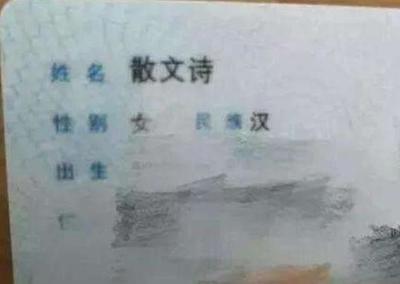 姓名 散文诗
性别 女 民族 汉
出生